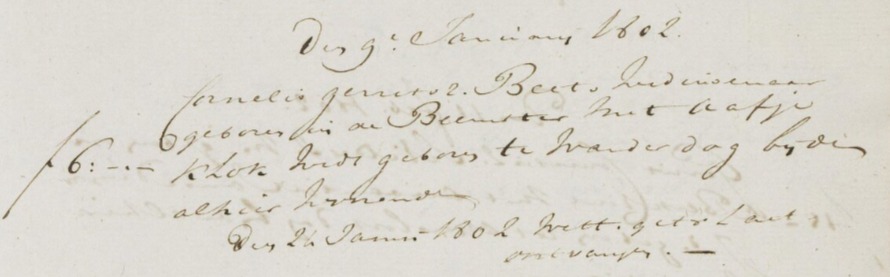 Den 9e Januarij 1802.
Cornelis Gerritsz. Beets Wedúwenaar
geboren in de Beemster met Aafje
f 6:-.- Klok Wedᵉ geboren te Warder dog beÿde
alhier woonende
Den 24 Januⁱ 1802 Wett. getr: Laat
ontvangen. —